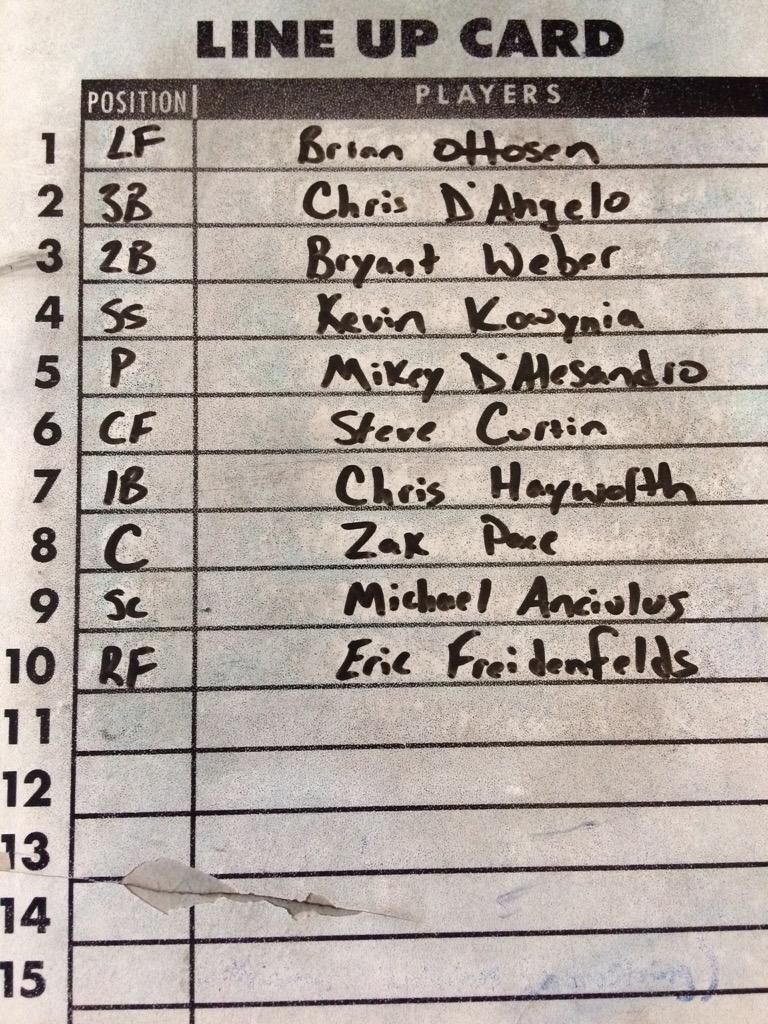 LINE UP CARD
POSITION PLAYERS
1 LF Brian Ottosen
2 3B Chris D'Angelo
3 2B Bryant Weber
4 SS Kevin Kowynia
5 P Mikey D'Alesandro
6 CF Steve Curtin
7 1B Chris Hayworth
8 C Zak Pace
9 SC Michael Anciulus
10 RF Eric Freidenfelds
11
12
13
14
15